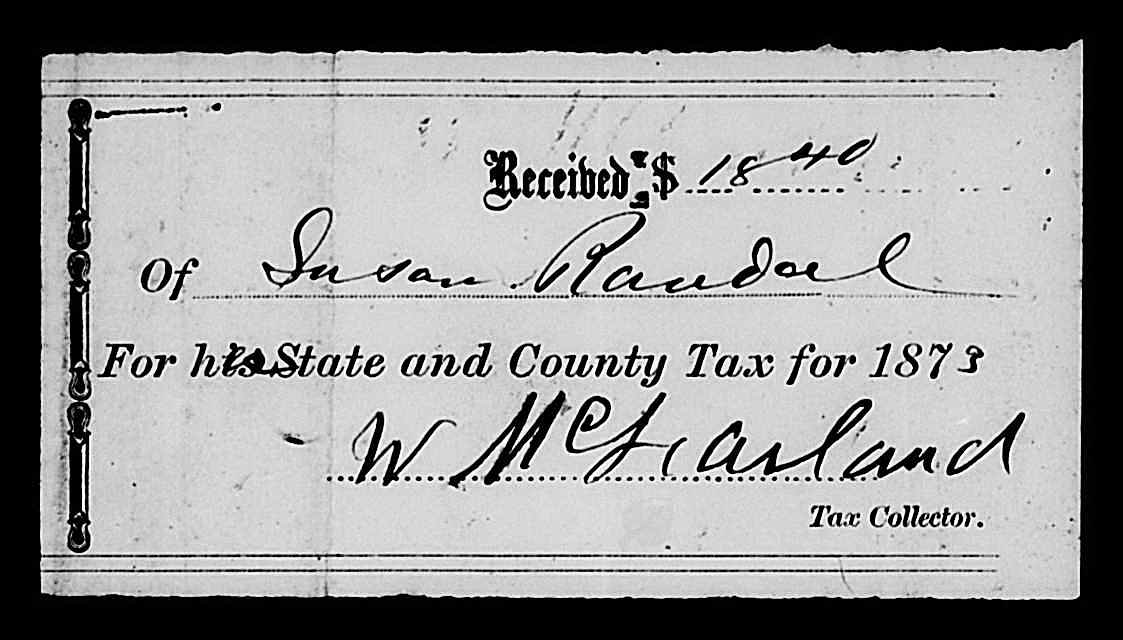 Received $ 18 40
Of Susan Randal
For his State and County Tax for 1873
W McFarland
Tax Collector.